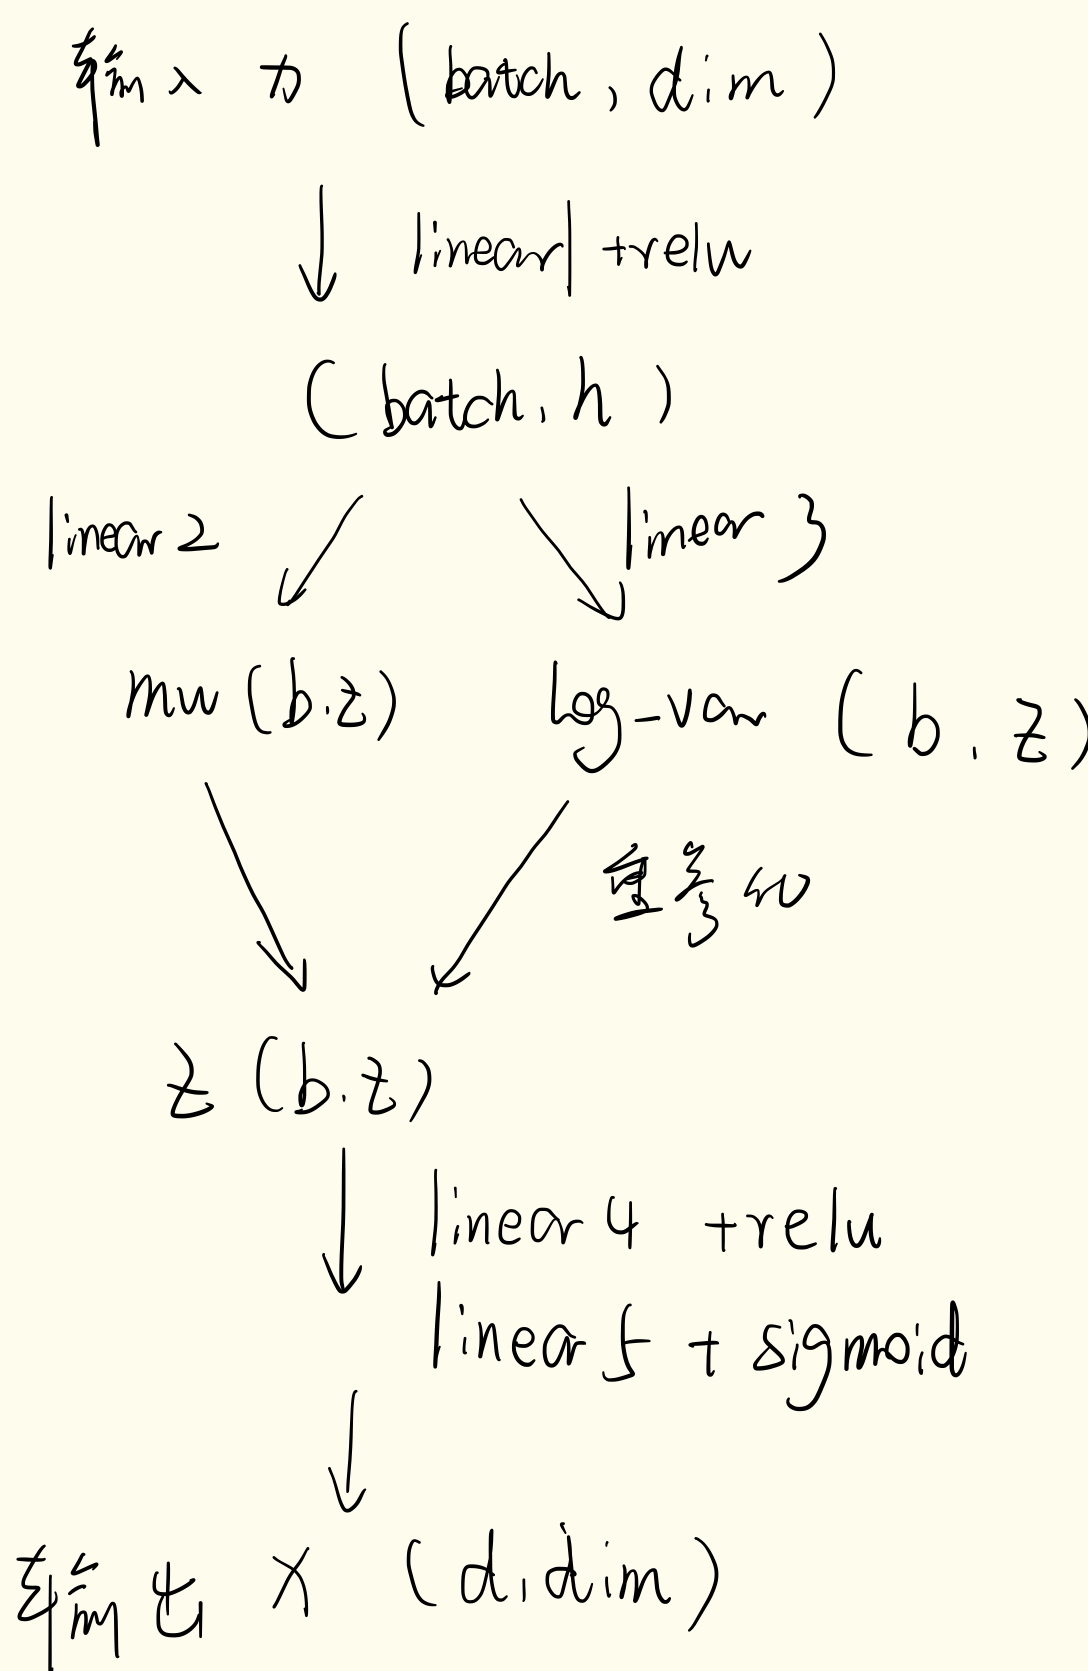 输入为 (batch, dim)
linear1 +relu
(batch, h)
linear2
linear 3
mu (b.z)
log_var (b, z)
重参化
z (b.z)
linear 4 +relu
linear 5 + sigmoid
输出 x (d, dim)